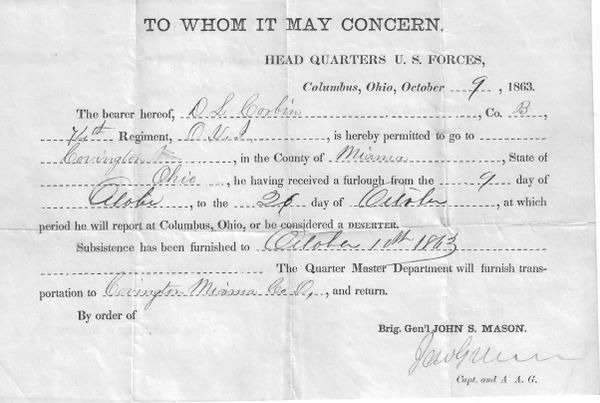 TO WHOM IT MAY CONCERN.
HEAD QUARTERS U. S. FORCES,
Columbus, Ohio, October 9, 1863.
The bearer hereof, D L Corbin, Co. B,
74th Regiment, O. V. I, is hereby permitted to go to
Covington, in the County of Miama, State of
Ohio, he having received a furlough from the 9 day of
to the 26 day of October, at which
period he will report at Columbus, Ohio, or be considered a DESERTER.
Subsistence has been furnished to October 10th 1863
The Quarter Master Department will furnish trans-
portation to Covington Miama Co O, and return.
By order of
Brig. Gen'l JOHN S. MASON.
Capt. and A. A. G.